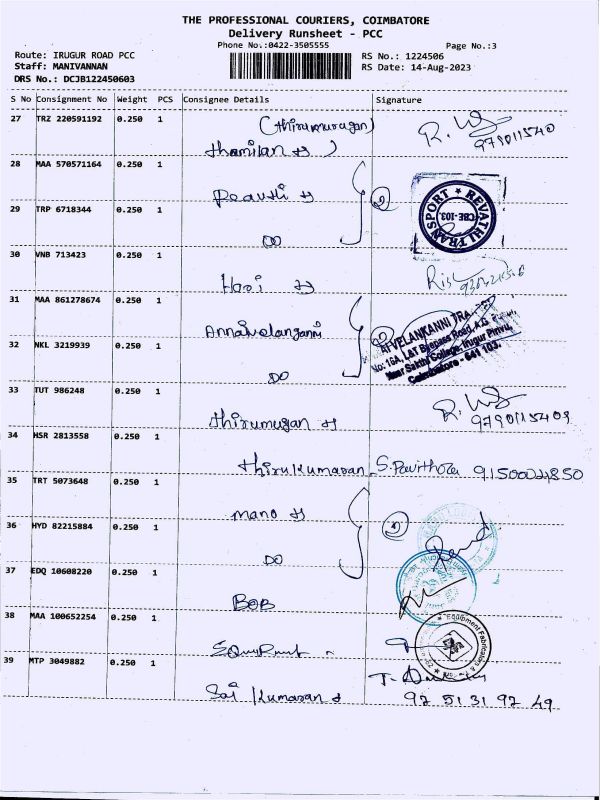 THE PROFESSIONAL COURIERS, COIMBATORE
Delivery Runsheet - PCC
Phone No.:0422-3505555
Page No.:3
Route: IRUGUR ROAD PCC
Staff: MANIVANNAN
DRS No.: DCJB122450603
RS No.: 1224506
RS Date: 14-Aug-2023
S No Consignment No Weight PCS Consignee Details Signature
27 TRZ 220591192 0.250 1 (Thirumurugan)
Thamilan
28 MAA 570571164 0.250 1
Revathi
2
REVATHI TRANSPORT
CBE-103.
29 TRP 6718344 0.250 1
DO
30 VNB 713423 0.250 1
Hari
31 MAA 861278674 0.250 1
Annaivelanganni
2
32 NKL 3219939 0.250 1
No: 16A, L&T Byepass Road, A.G. Pudur,
Near Sakthi College, Irugur Pirivu,
Coimbatore - 641 103.
DO
33 TUT 986248 0.250 1
Thirumugan
R.
34 HSR 2813558 0.250 1
Thirukumaran S.Pavithora 9150024850
35 TRT 5073648 0.250 1
mano
2
36 HYD 82215884 0.250 1
DO
37 EDQ 10608220 0.250 1
BOB
38 MAA 100652254 0.250 1
Equipment Fabricators
39 MTP 3049882 0.250 1
Sai Kumaran 92 51 31 92 49